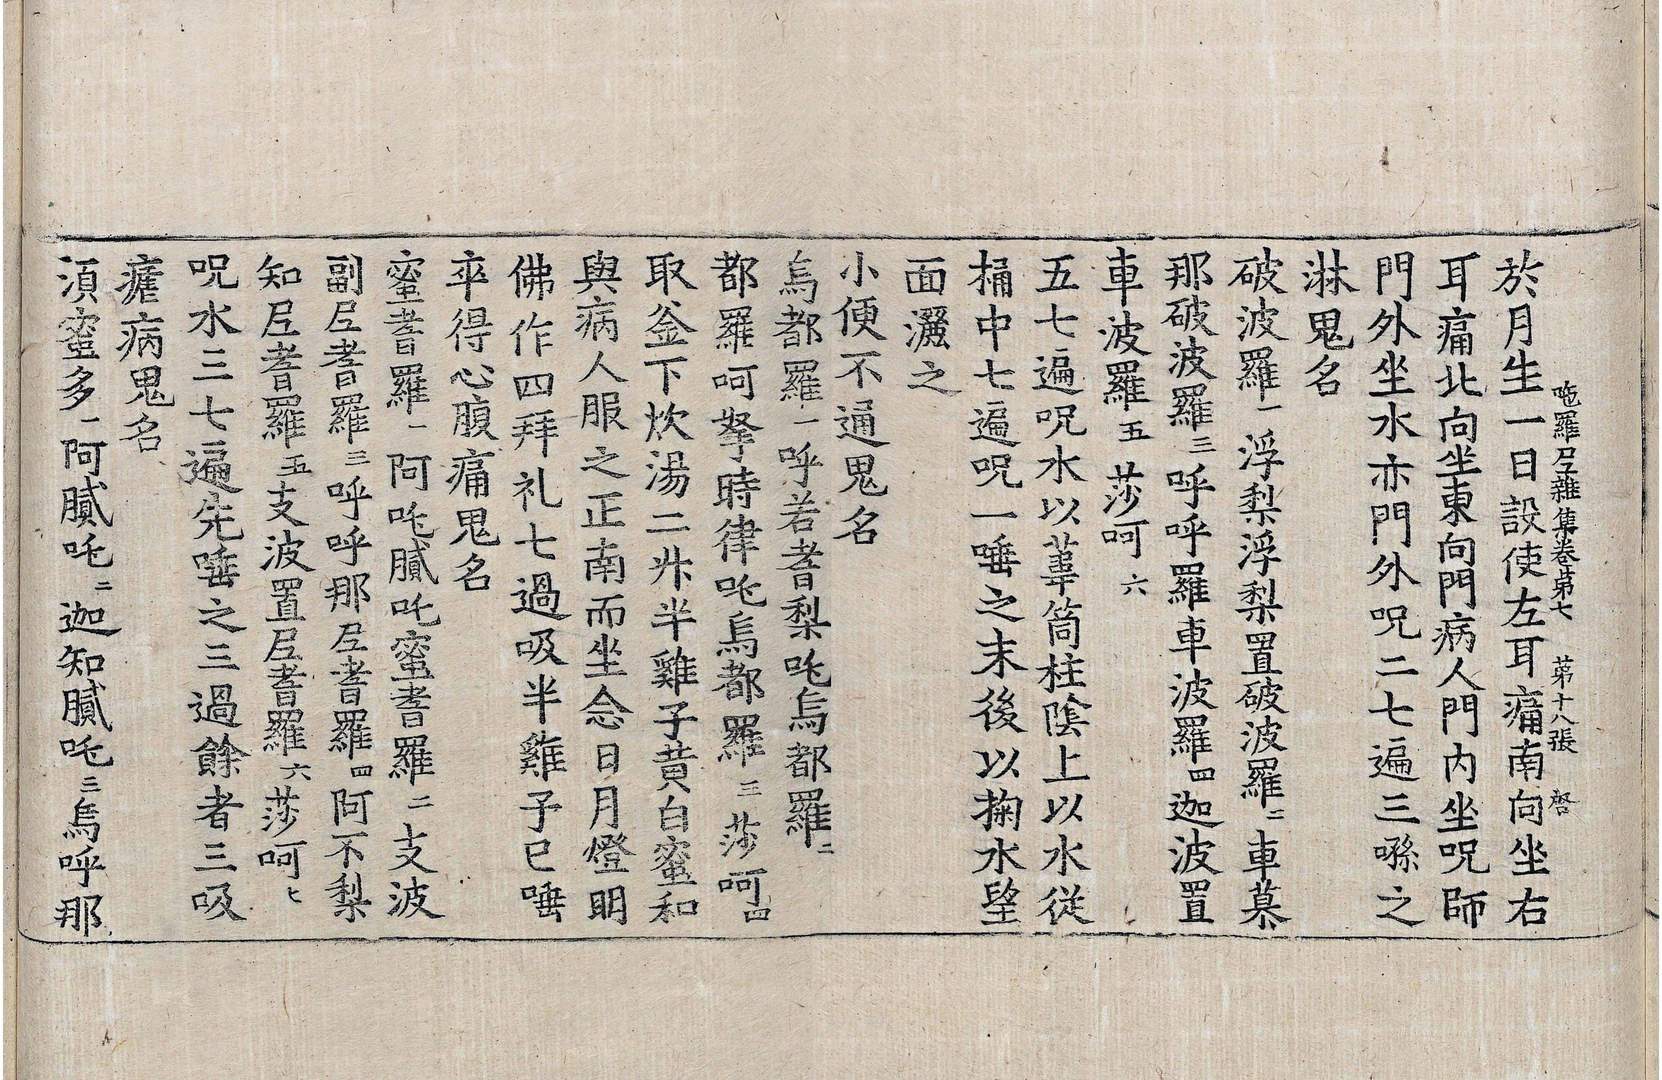 陁羅尼雜集卷第七 第十八張
於月生一日設使左耳痛南向坐右
耳痛北向坐東向門病人門內坐呪師
門外坐水亦門外呪二七遍三噀之
淋鬼名
破波羅一浮梨浮梨置破波羅二車慕
那破波羅三呼呼羅車波羅四迦波置
車波羅五莎呵六
五七遍呪水以葦筒柱陰上以水從
桶中七遍呪一唾之末後以掬水望
面灑之
小便不通鬼名
烏都羅一呼若耆梨吒烏都羅二
都羅呵拏時律吒烏都羅三莎呵四
取釜下炊湯二升半雞子黄白蜜和
與病人服之正南而坐念日月燈明
佛作四拜礼七過吸半雞子已唾
卒得心腹痛鬼名
蜜耆羅一阿吒膩吒蜜耆羅二支波
副尼耆羅三呼呼那尼耆羅四阿不梨
知尼耆羅五支波置尼耆羅六莎呵七
呪水三七遍先唾之三過餘者三吸
瘧病鬼名
湏蜜多一阿膩吒二迦知膩吒三烏呼那